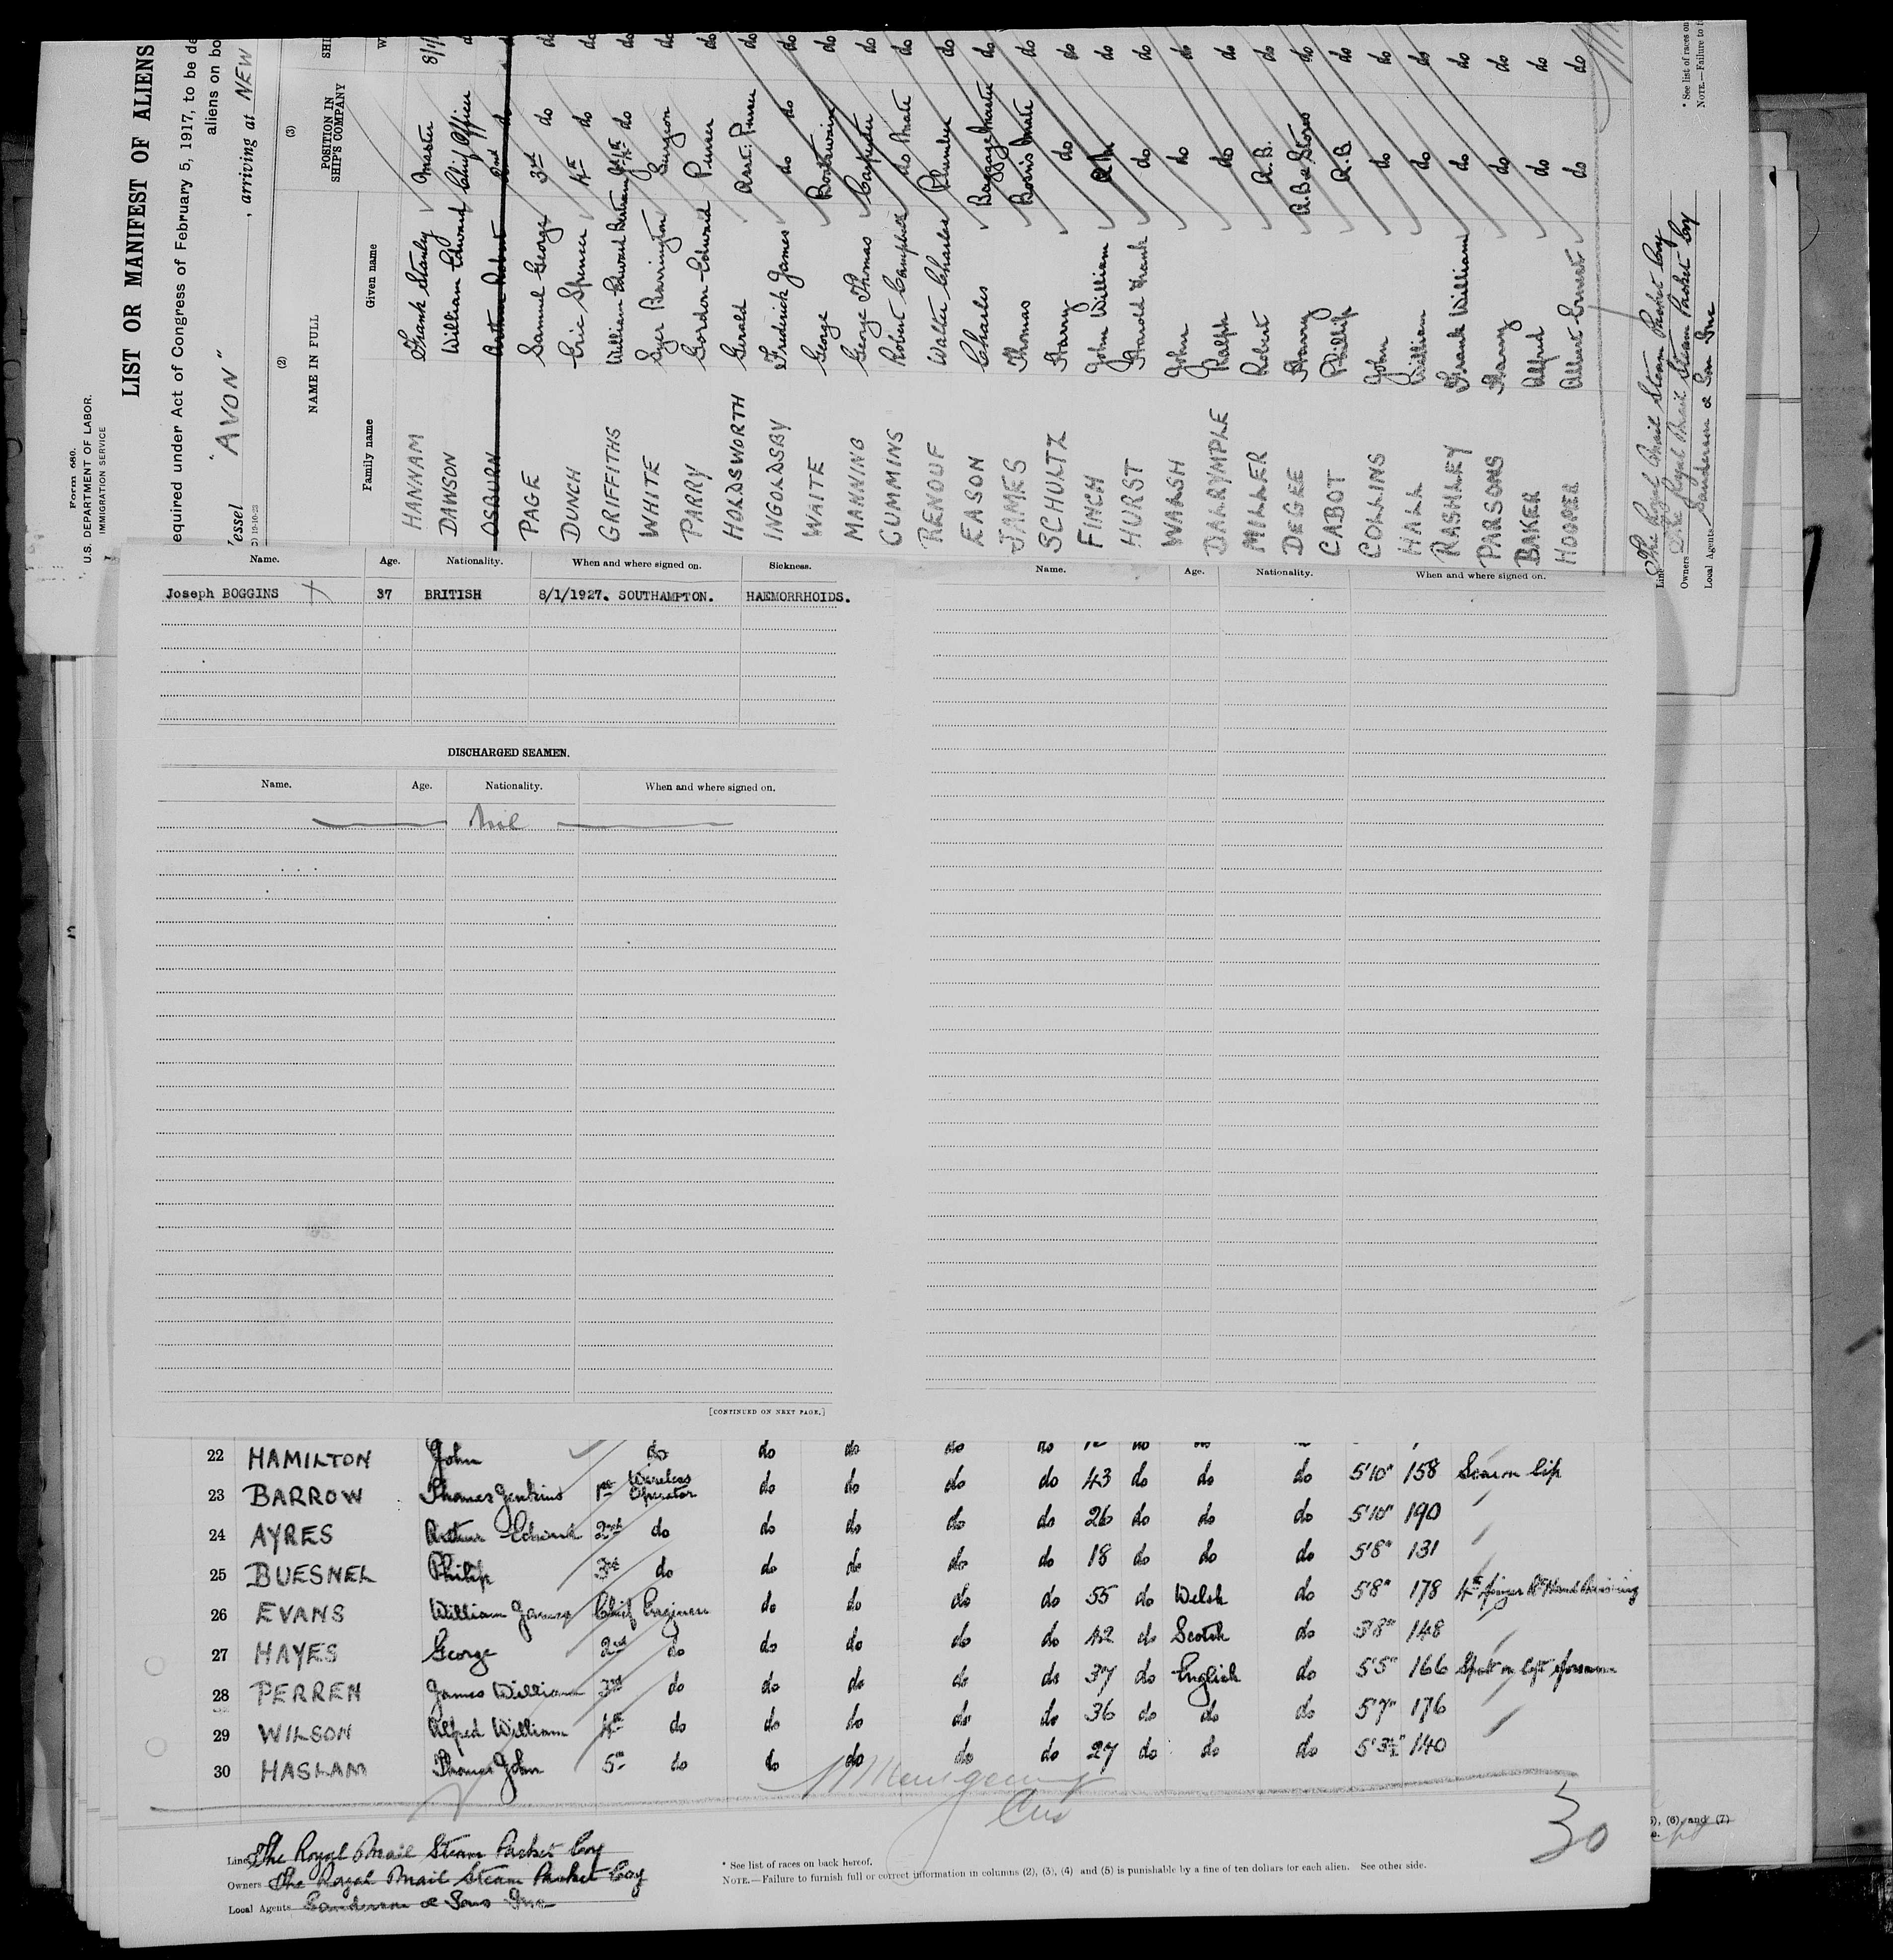 Form 680.
U.S. DEPARTMENT OF LABOR.
IMMIGRATION SERVICE
LIST OR MANIFEST OF ALIENS
equired under Act of Congress of February 5, 1917, to be de
aliens on bo
essel "AVON", arriving at NEW
(2) (3)
NAME IN FULL POSITION IN SHIP'S COMPANY SHI
Family name Given name W
HANNAM Frank Stanley Master 8/1/
DAWSON William Edward Chief Officer d
OSBURN Arthur Robert 2nd do do
PAGE Samuel George 3rd do do
DUNCH Eric Spencer 4th do do
GRIFFITHS William Edward do do
WHITE Barrington Surgeon do
PARRY Gordon Edward Purser do
HOLDSWORTH Gerald Asst: Purser do
INGOLDSBY Frederick James do do do
WAITE George Boatswain do
MANNING George Thomas Carpenter do
CUMMINS Robert Campbell do Mate do
RENOUF Walter Charles Plumber do
EASON Charles Baggage Master do
JAMES Thomas Bosins Mate do
SCHULTZ Harry do do
FINCH John William do
HURST Harold Frank do do
WALSH John do do
DALRYMPLE Ralph do do
MILLER Robert A.B. do
DEGEE Harry A.B. & Stores do
CABOT Phillip A.B. do
COLLINS John do do
HALL William do do
RASHLEY Frank William do do
PARSONS Harry do do
BAKER Alfred do do
HOMER Albert Ernest do do
Line The Royal Mail Steam Packet Coy
Owners The Royal Mail Steam Packet Coy
Local Agents Sanderson & Son Inc
* See list of races on
NOTE.—Failure to
Name. Age. Nationality. When and where signed on. Sickness.
Joseph BOGGINS X 37 BRITISH 8/1/1927. SOUTHAMPTON. HAEMORRHOIDS.
DISCHARGED SEAMEN.
Name. Age. Nationality. When and where signed on.
Nil
[CONTINUED ON NEXT PAGE.]
Name. Age. Nationality. When and where signed on.
22 HAMILTON John do do do do do
23 BARROW Thomas Jenkins 1st Wireless Operator do do do do 43 do do do 5'10" 158 Scar on lip
24 AYRES Arthur Edward 2nd do do do do do 26 do do do 5'10" 190
25 BUESNEL Philip 3rd do do do do do 18 do do do 5'8" 131
26 EVANS William James Chief Engineer do do do do 55 do Welsh do 5'8" 178 4th finger Rt Hand missing
27 HAYES George 2nd do do do do do 42 do Scotch do 148
28 PERREN James William 3rd do do do do do 37 do English do 5'5" 166 Spot on left forearm
29 WILSON Alfred William 4th do do do do do 36 do do do 5'7" 176
30 HASLAM Thomas John 5th do do do do do 27 do do do 5'3½" 140
30
Line The Royal Mail Steam Packet Coy
Owners The Royal Mail Steam Packet Coy
Local Agents Sanderson & Sons Inc
* See list of races on back hereof.
NOTE.—Failure to furnish full or correct information in columns (2), (3), (4) and (5) is punishable by a fine of ten dollars for each alien. See other side.
(6), and (7)